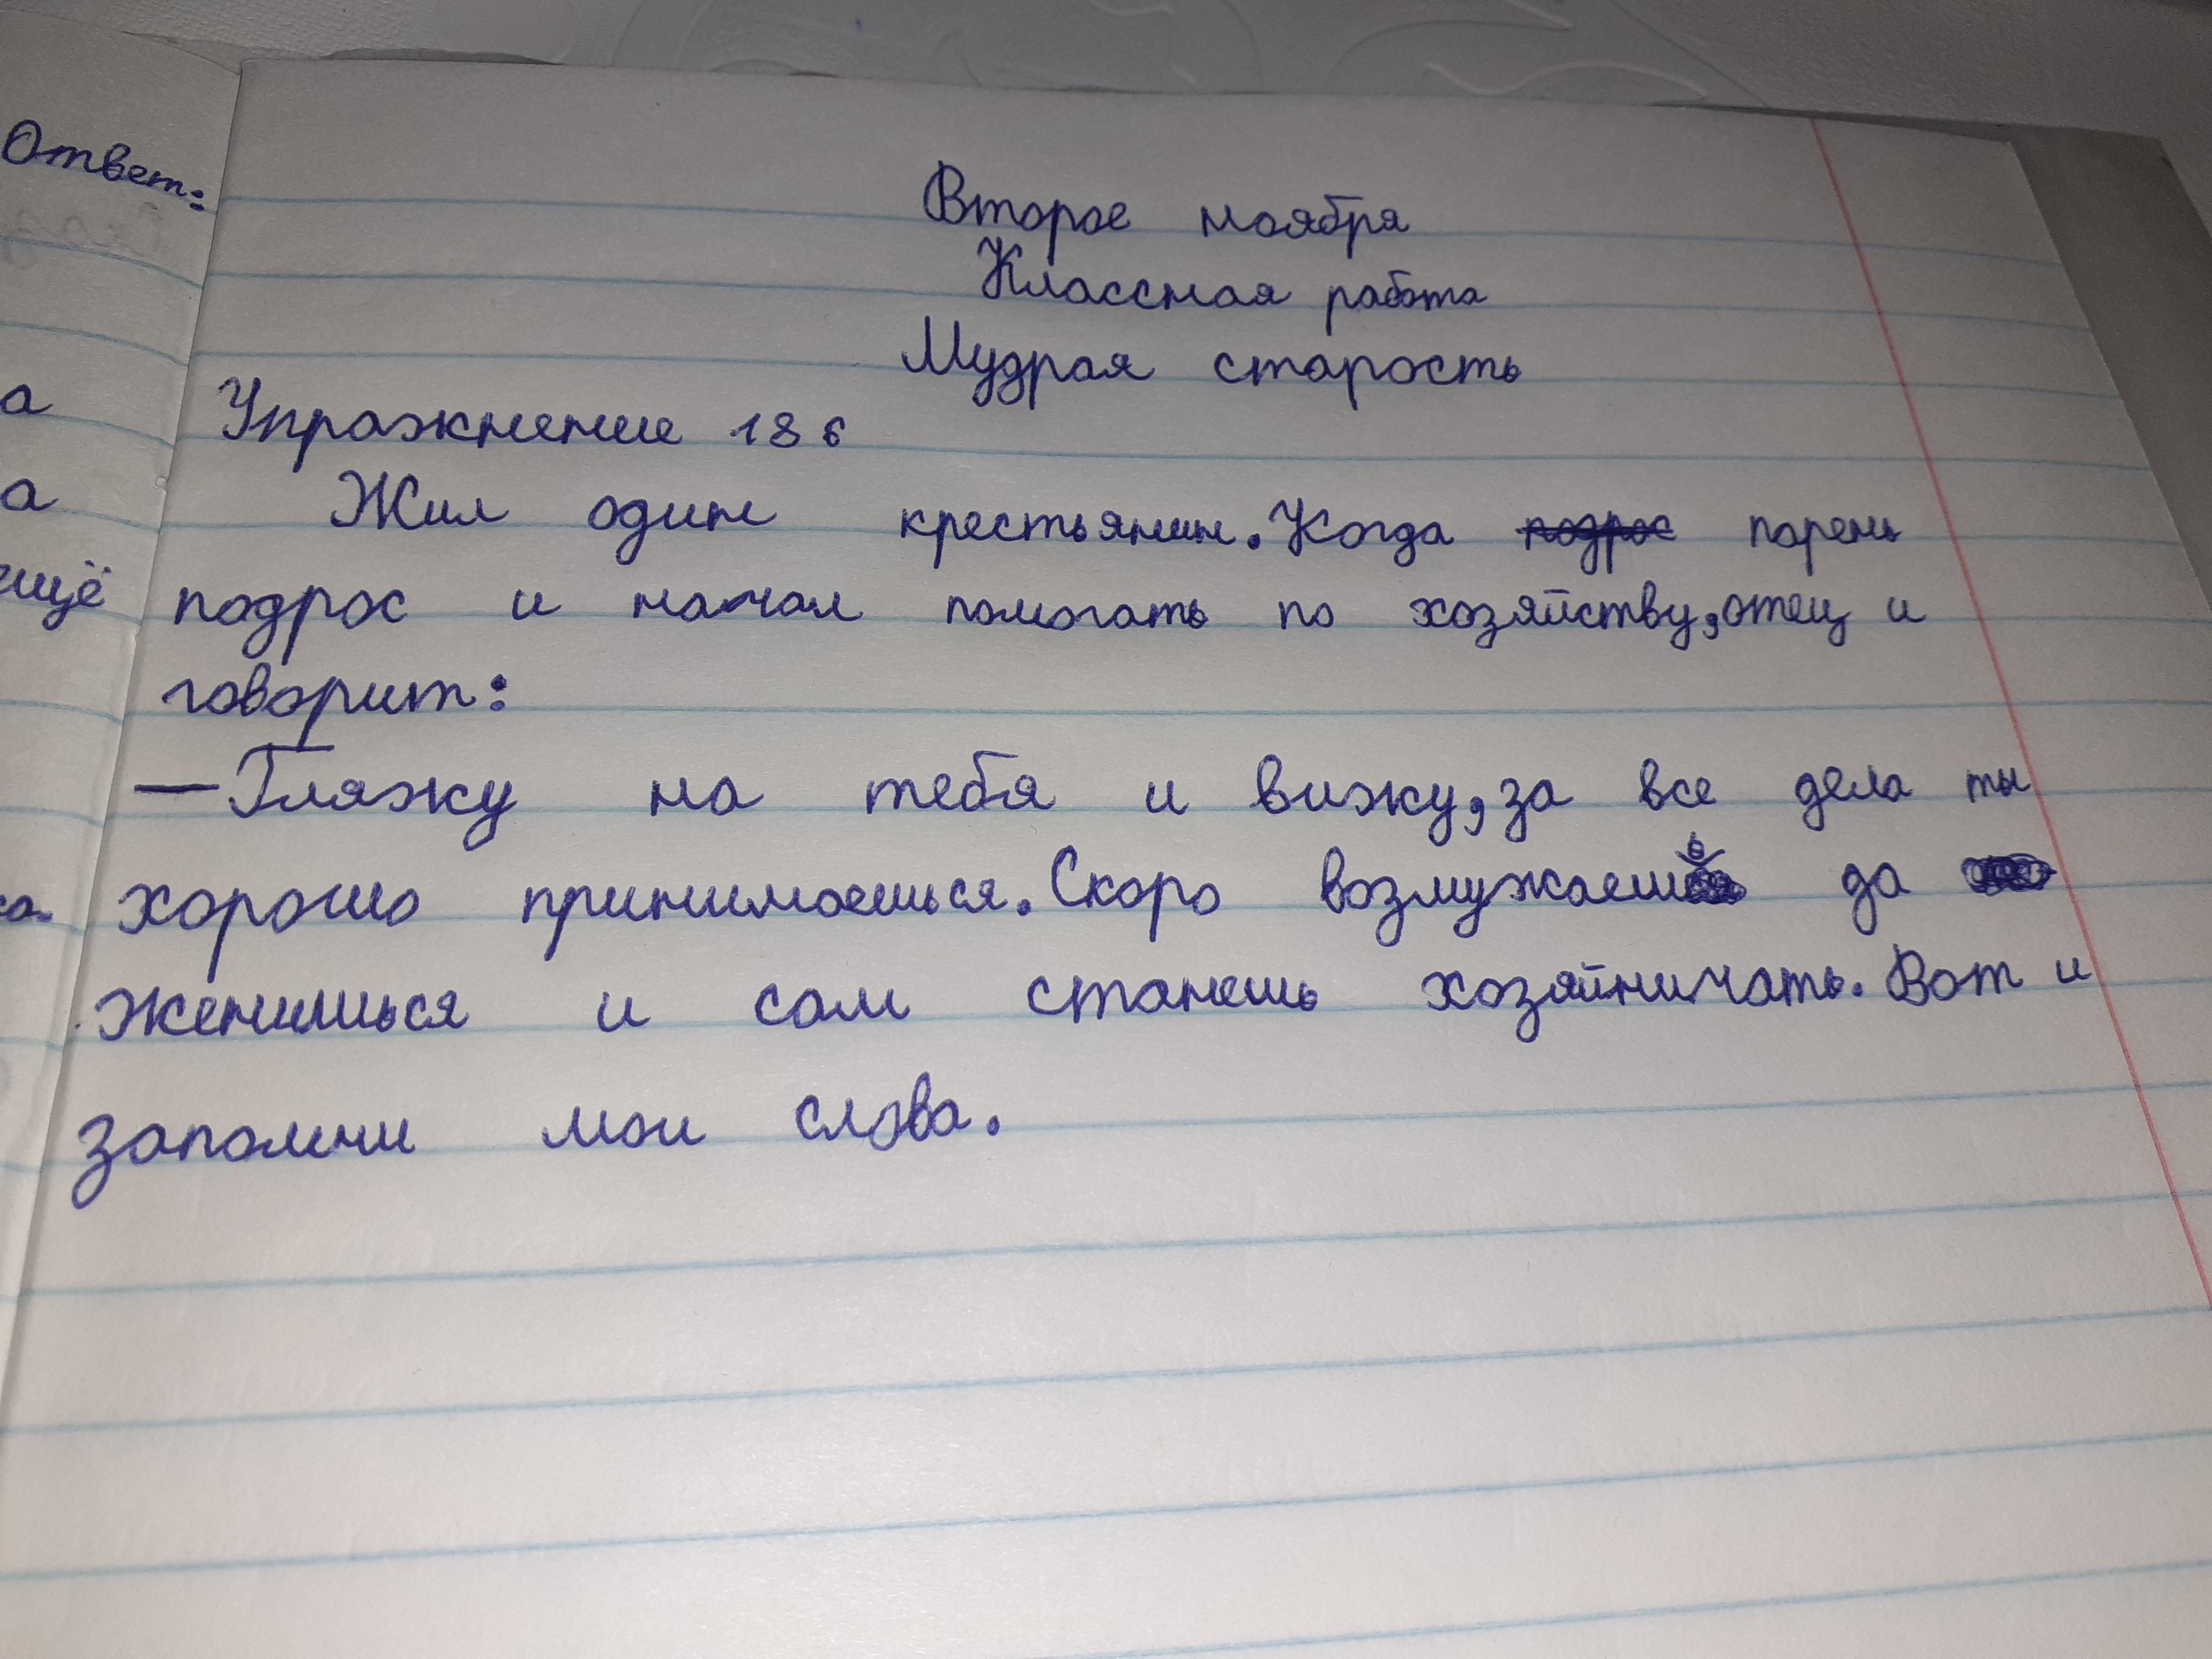 Ответ:
а
а
ещё
Второе ноября
Классная работа
Мудрая старость
Упражнение 186
Жил один крестьянин. Когда подрос парень
подрос и начал помогать по хозяйству, отец и
говорит:
— Гляжу на тебя и вижу, за все дела ты
хорошо принимаешься. Скоро возмужаешь да
женишься и сам станешь хозяйничать. Вот и
запомни мои слова.